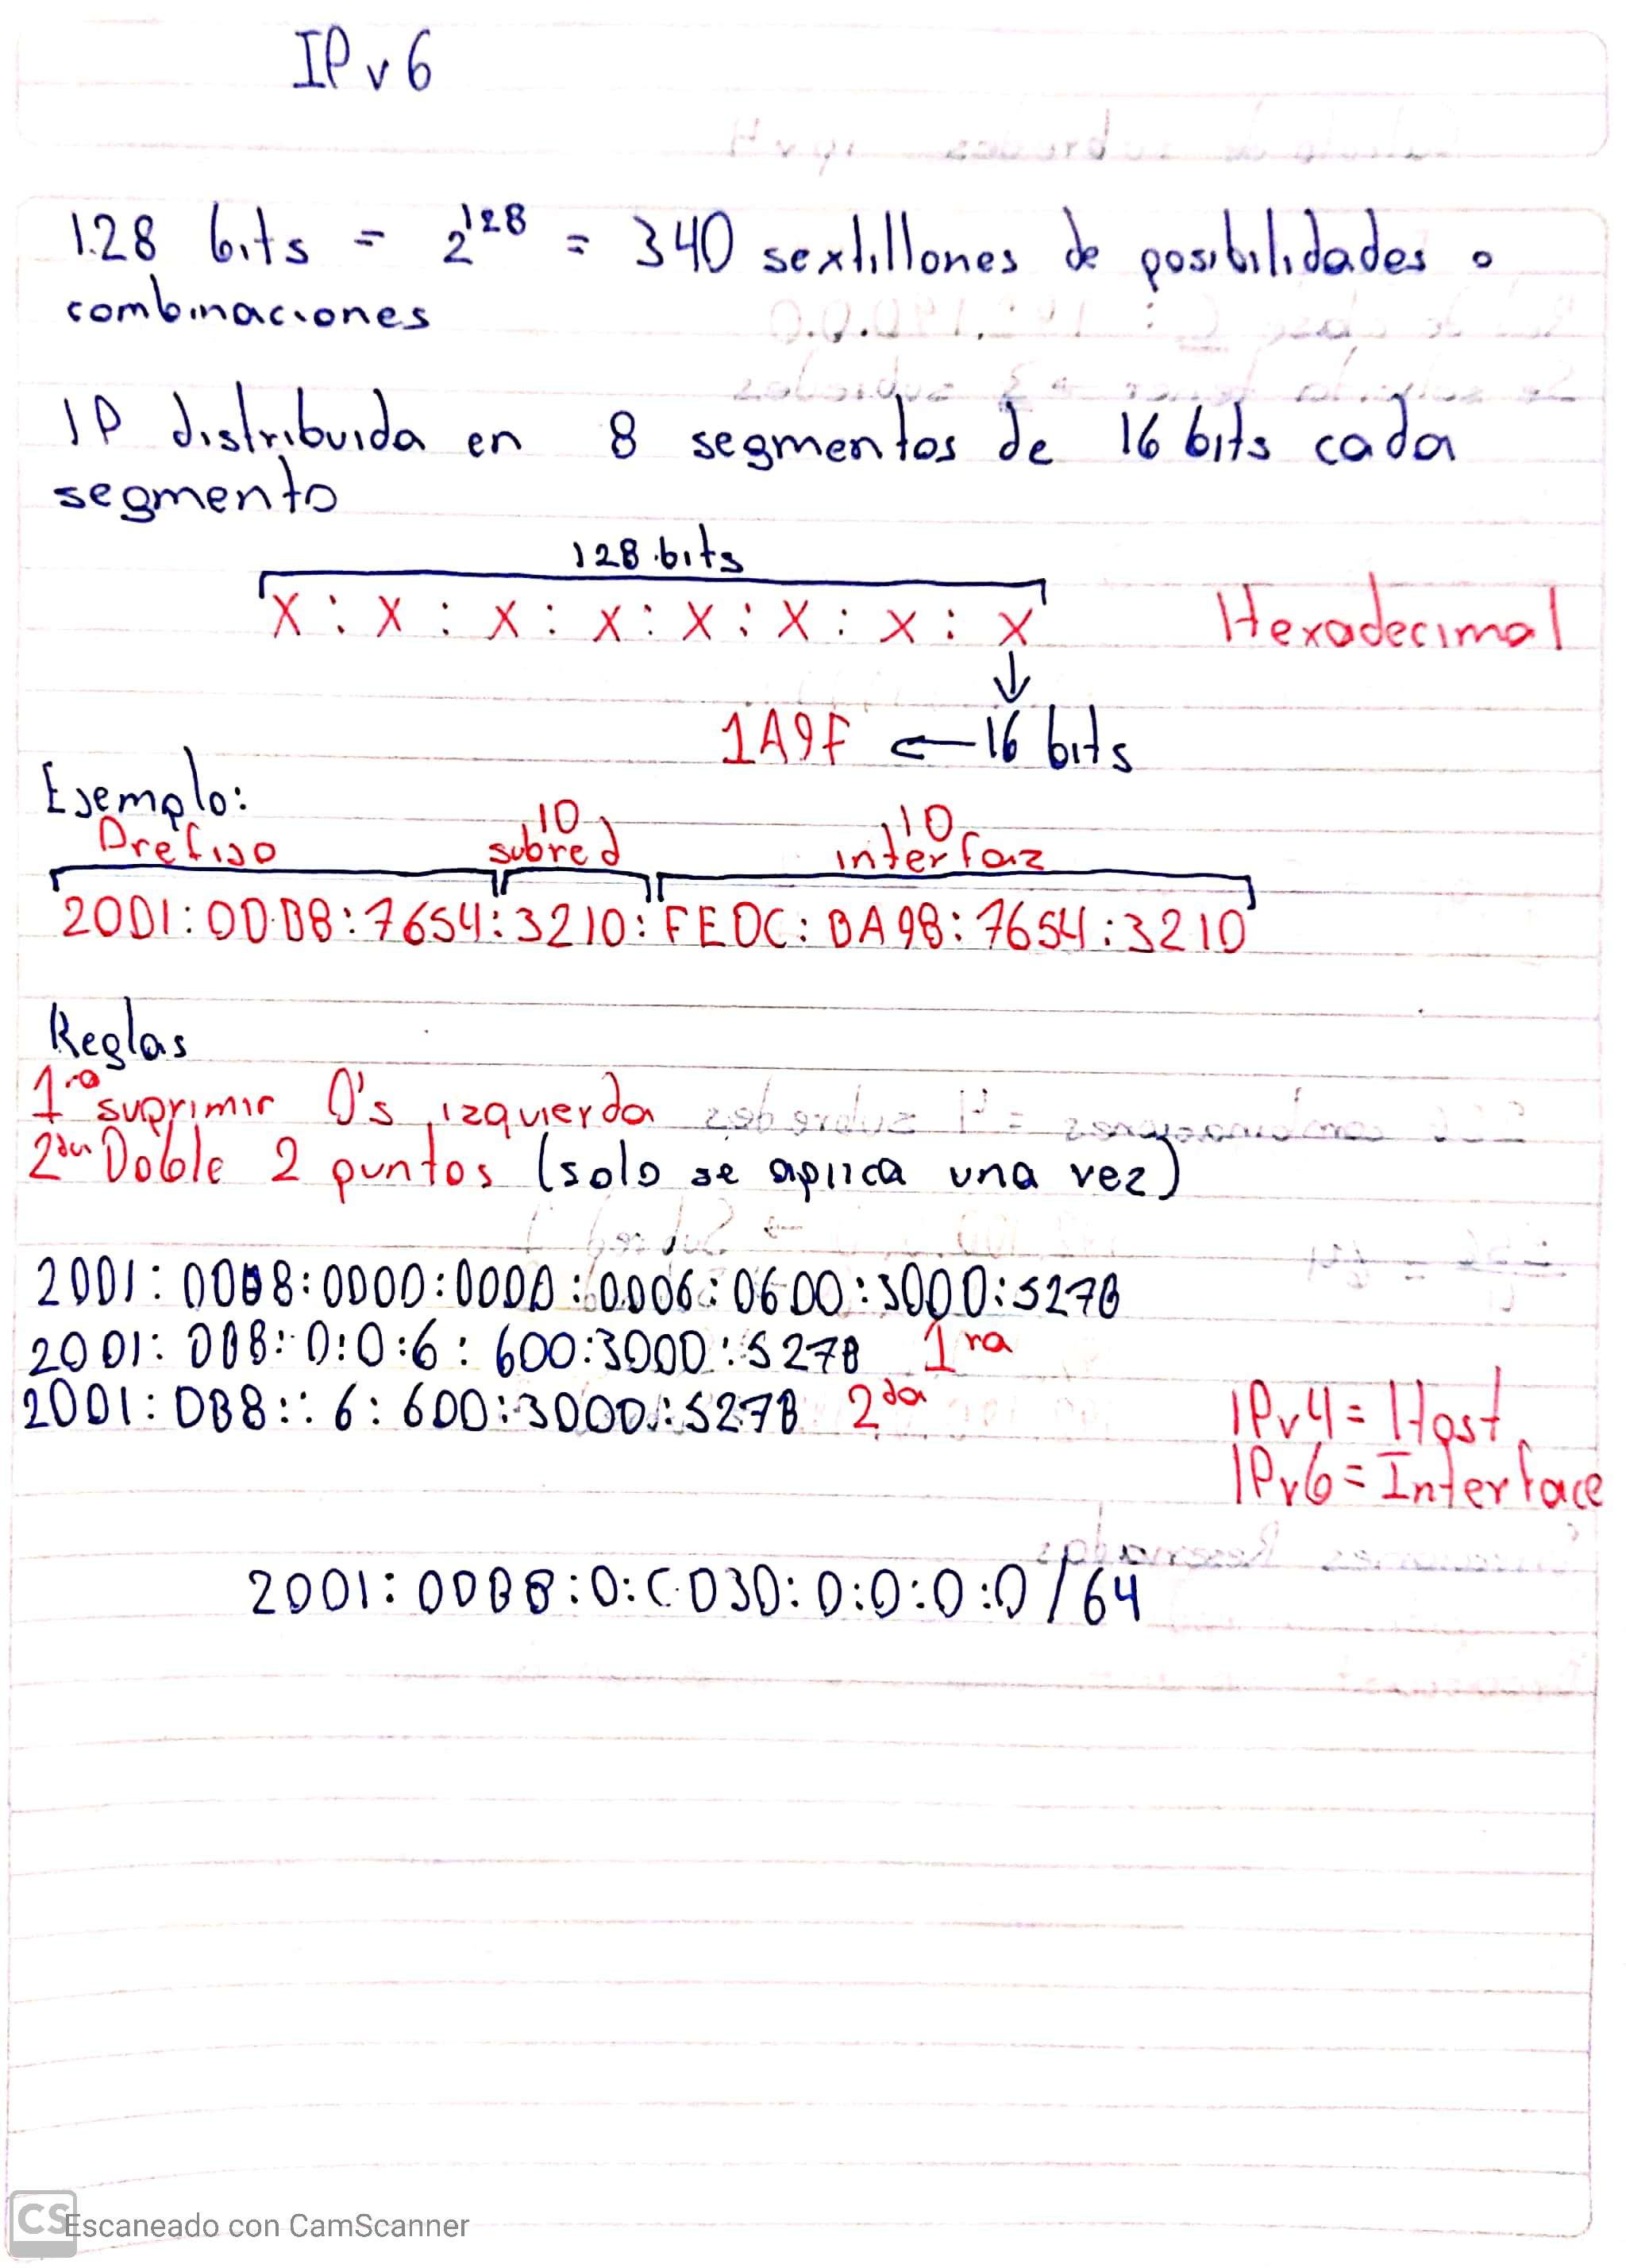 IPv6
128 bits = 2^128 = 340 sextillones de posibilidades o
combinaciones
IP distribuida en 8 segmentos de 16 bits cada
segmento
128 bits
X : X : X : X : X : X : X : X Hexadecimal
1A9F ← 16 bits
Ejemplo:
Prefijo ID subred ID interfaz
2001:0DB8:7654:3210:FEDC:BA98:7654:3210
Reglas
1ra suprimir 0's izquierda
2da Doble 2 puntos (solo se aplica una vez)
2001:0DB8:0000:0000:0006:0600:3000:527B
2001:DB8:0:0:6:600:3000:527B 1ra
2001:DB8::6:600:3000:527B 2da
IPv4 = Host
IPv6 = Interface
2001:0DB8:0:CD30:0:0:0:0/64
CS Escaneado con CamScanner